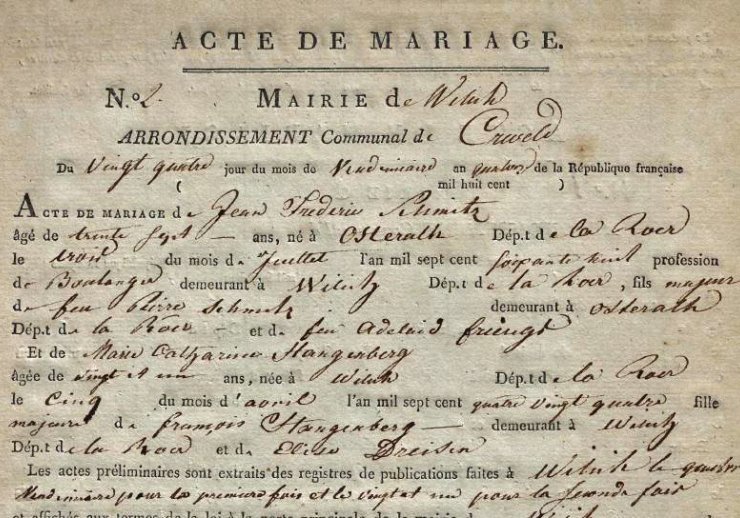 ACTE DE MARIAGE.
N.º 2. MAIRIE de Wilich
ARRONDISSEMENT Communal de Creveld
Du Vingt quatre jour du mois de Vendemiaire an quatorze de la République française
mil huit cent )
ACTE DE MARIAGE de Jean Frederic Schmitz
âgé de trente sept — ans, né à Osterath Dép.t de la Roer
le trois du mois de Juillet l'an mil sept cent soixante huit profession
de Boulanger demeurant à Wilich Dép.t de la Roer, fils majeur
de feu Pierre Schmitz demeurant à Osterath
Dép.t de la Roer — et de feu Adelaid
Et de Marie Catharine Stangenberg
âgée de vingt et un ans, née à Wilich Dép.t de la Roer
le Cinq du mois d'avril l'an mil sept cent quatre vingt quatre fille
majeure de François Stangenberg — demeurant à Wilich
Dép.t de la Roer et de Elise Dreisen
Les actes préliminaires sont extraits des registres de publications faites à Wilich le quatorze
Vendemiaire pour la premiere fois et le vingt et un pour la seconde fois
et affichés aux termes de la loi à la porte principale de la mairie de